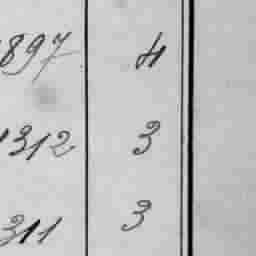 897 4
1312 3
311 3